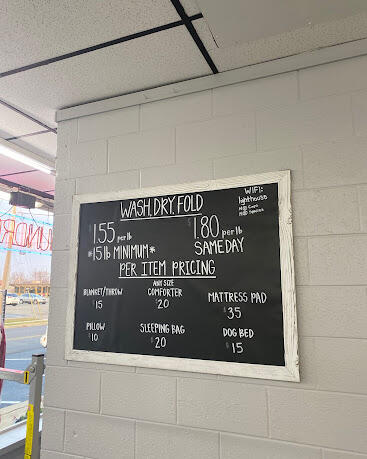 WASH, DRY, FOLD
$1.55 per lb
$1.80 per lb
*15 lb MINIMUM*
SAME DAY
PER ITEM PRICING
BLANKET/THROW
$15
ANY SIZE
COMFORTER
$20
MATTRESS PAD
$35
PILLOW
$10
SLEEPING BAG
$20
DOG BED
$15
WIFI:
lighthouse